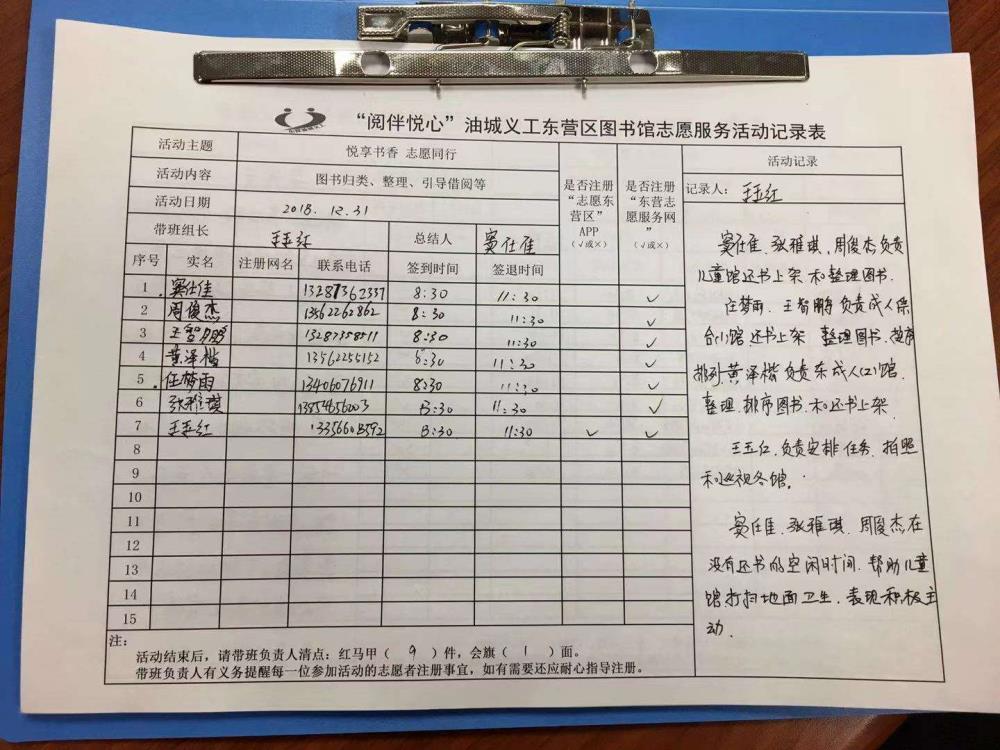 “阅伴悦心”油城义工东营区图书馆志愿服务活动记录表
活动主题 悦享书香 志愿同行
活动内容 图书归类、整理、引导借阅等
活动日期 2018. 12.31
带班组长 王玉红 总结人 窦仕佳
是否注册“志愿东营区”APP(√或×)
是否注册“东营志愿服务网”(√或×)
序号 实名 注册网名 联系电话 签到时间 签退时间
1 窦仕佳 13287362337 8:30 11:30 √
2 周俊杰 13562262862 8:30 11:30 √
3 王智鹏 8:30 11:30 √
4 黄泽楷 13562255152 8:30 11:30 √
5 任梦雨 13406076911 8:30 11:30 √
6 张雅琪 13854656003 8:30 11:30 √
7 王玉红 8:30 11:30 √ √
8
9
10
11
12
13
14
15
注:
活动结束后，请带班负责人清点：红马甲（ 9 ）件，会旗（ 1 ）面。
带班负责人有义务提醒每一位参加活动的志愿者注册事宜，如有需要还应耐心指导注册。
活动记录
记录人： 王玉红
窦仕佳、张雅琪，周俊杰负责
儿童馆还书上架 和整理图书.
任梦雨、王智鹏 负责成人综
合(1)馆 还书上架 整理图书.
排列黄泽楷 负责东成人(2)馆.
整理.排序图书.和还书上架.
王玉红.负责安排任务.拍照
和巡视各馆.
窦仕佳.张雅琪.周俊杰在
没有还书的空闲时间.帮助儿童
馆打扫地面卫生.表现积极主
动.